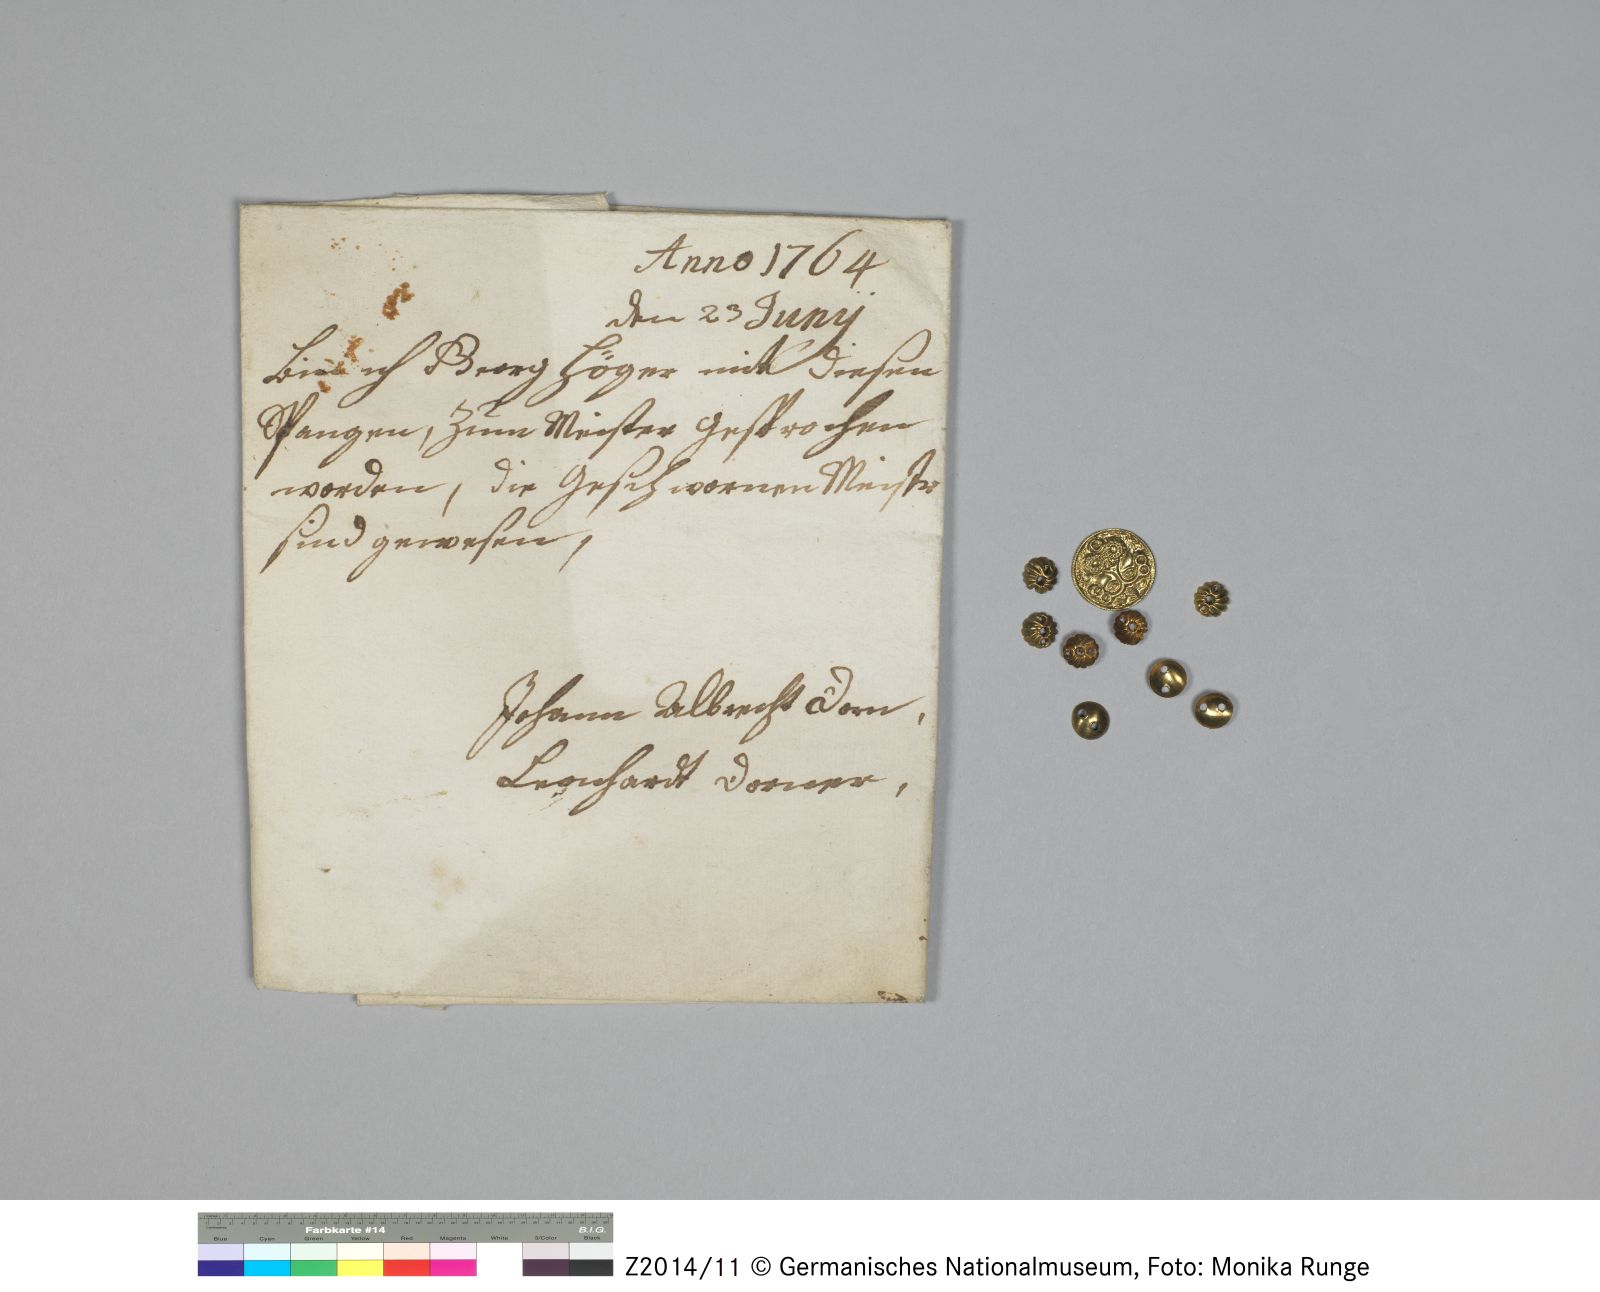 Anno 1764
den 23 Junÿ
bin ich Georg Höger mit diesen
Spangen, zum Meister gesprochen
worden, die Geschwornen Meister
sind gewesen,
Johann Albrecht Dorn,
Leonhardt Dorner,
Farbkarte #14
B.I.G.
Blue Cyan Green Yellow Red Magenta White 3/Color Black
Z2014/11 © Germanisches Nationalmuseum, Foto: Monika Runge